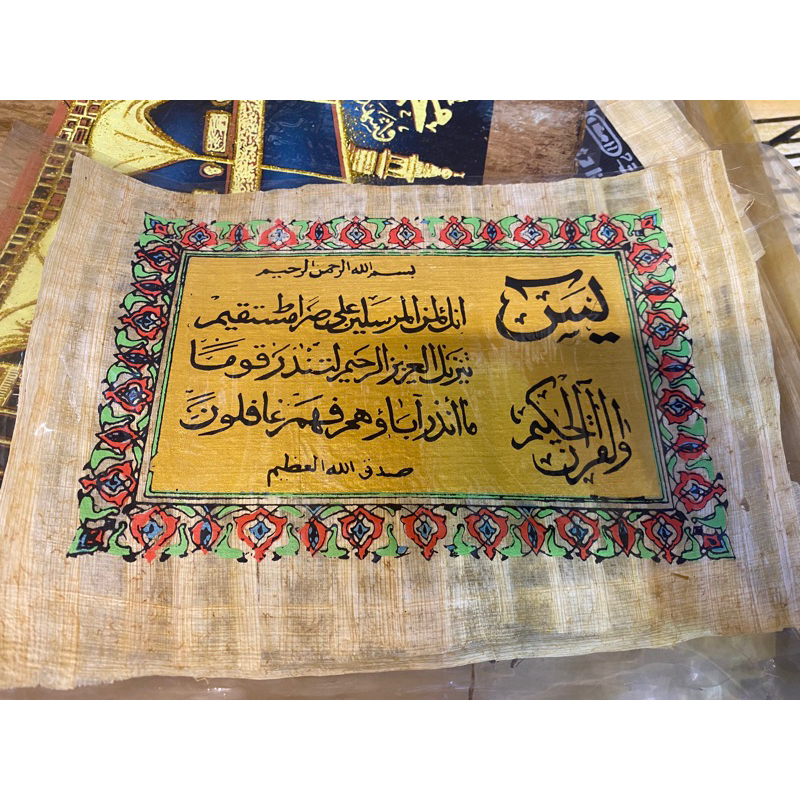 بسم الله الرحمن الرحيم
يس
والقرآن الحكيم
انك لمن المرسلين على صراط مستقيم
تنزيل العزيز الرحيم لتنذر قوما
ما انذر آباؤهم فهم غافلون
صدق الله العظيم